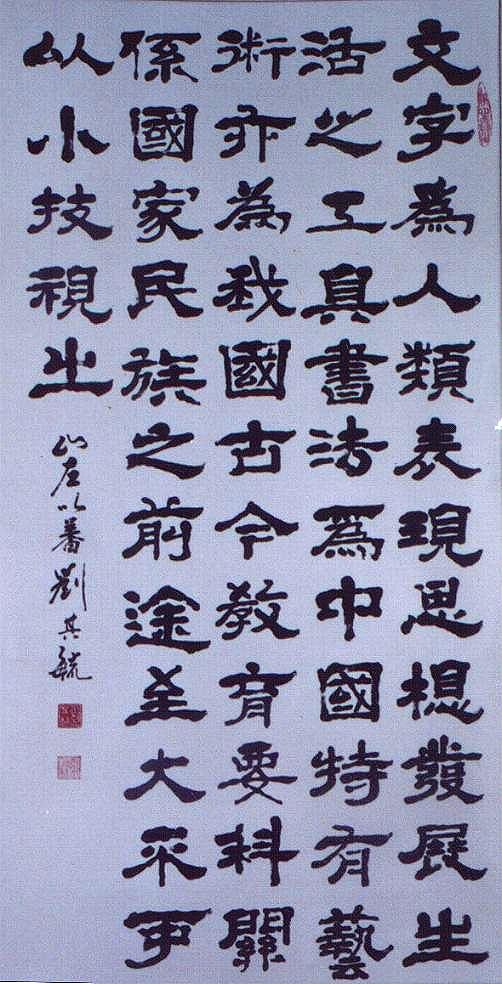 文字為人類表現思想發展生
活之工具書法為中國特有藝
術亦為我國古今教育要科關
係國家民族之前途至大不可
以小技視之
山左以蕃劉其毓